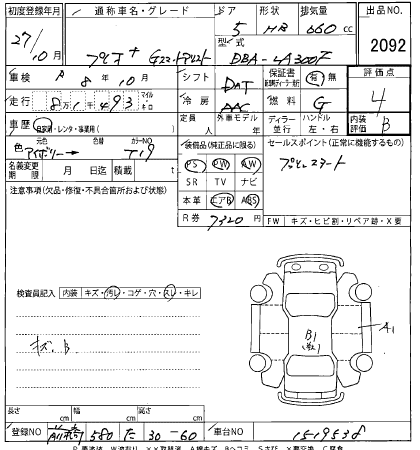 初度登録年月 通称車名・グレード ドア 形状 排気量 出品NO.
27/10月 プレオ+ 5 HB 660cc 2092
型式
DBA-LA300F
車検 8年10月 シフト DAT 保証書 有・無 評価点
走行 8万1千493 マイル キロ 冷房 AAC 燃料 G 4
車歴 自家用・レンタ・事業用( ) 定員 人 外車モデル 年 ディラー 並行 ハンドル 左・右 内装評価 B
色 元色 アイボリー→ 色替 カラーNO T19 装備品(純正品に限る) セールスポイント(正常に機能するもの)
名義変更期限 月 日迄 積載 t PS PW AW
注意事項(欠品・修復・不具合箇所および状態) SR TV ナビ
本革 エアB ABS
R券 7320円 FW キズ・ヒビ割・リペア跡・X要
検査員記入 内装 キズ・汚レ・コゲ・穴・スレ・キレ
キズ.B
B1
A1
長さ cm 幅 cm 高さ cm
登録NO 前橋 580 た 30-60 車台NO 1519538